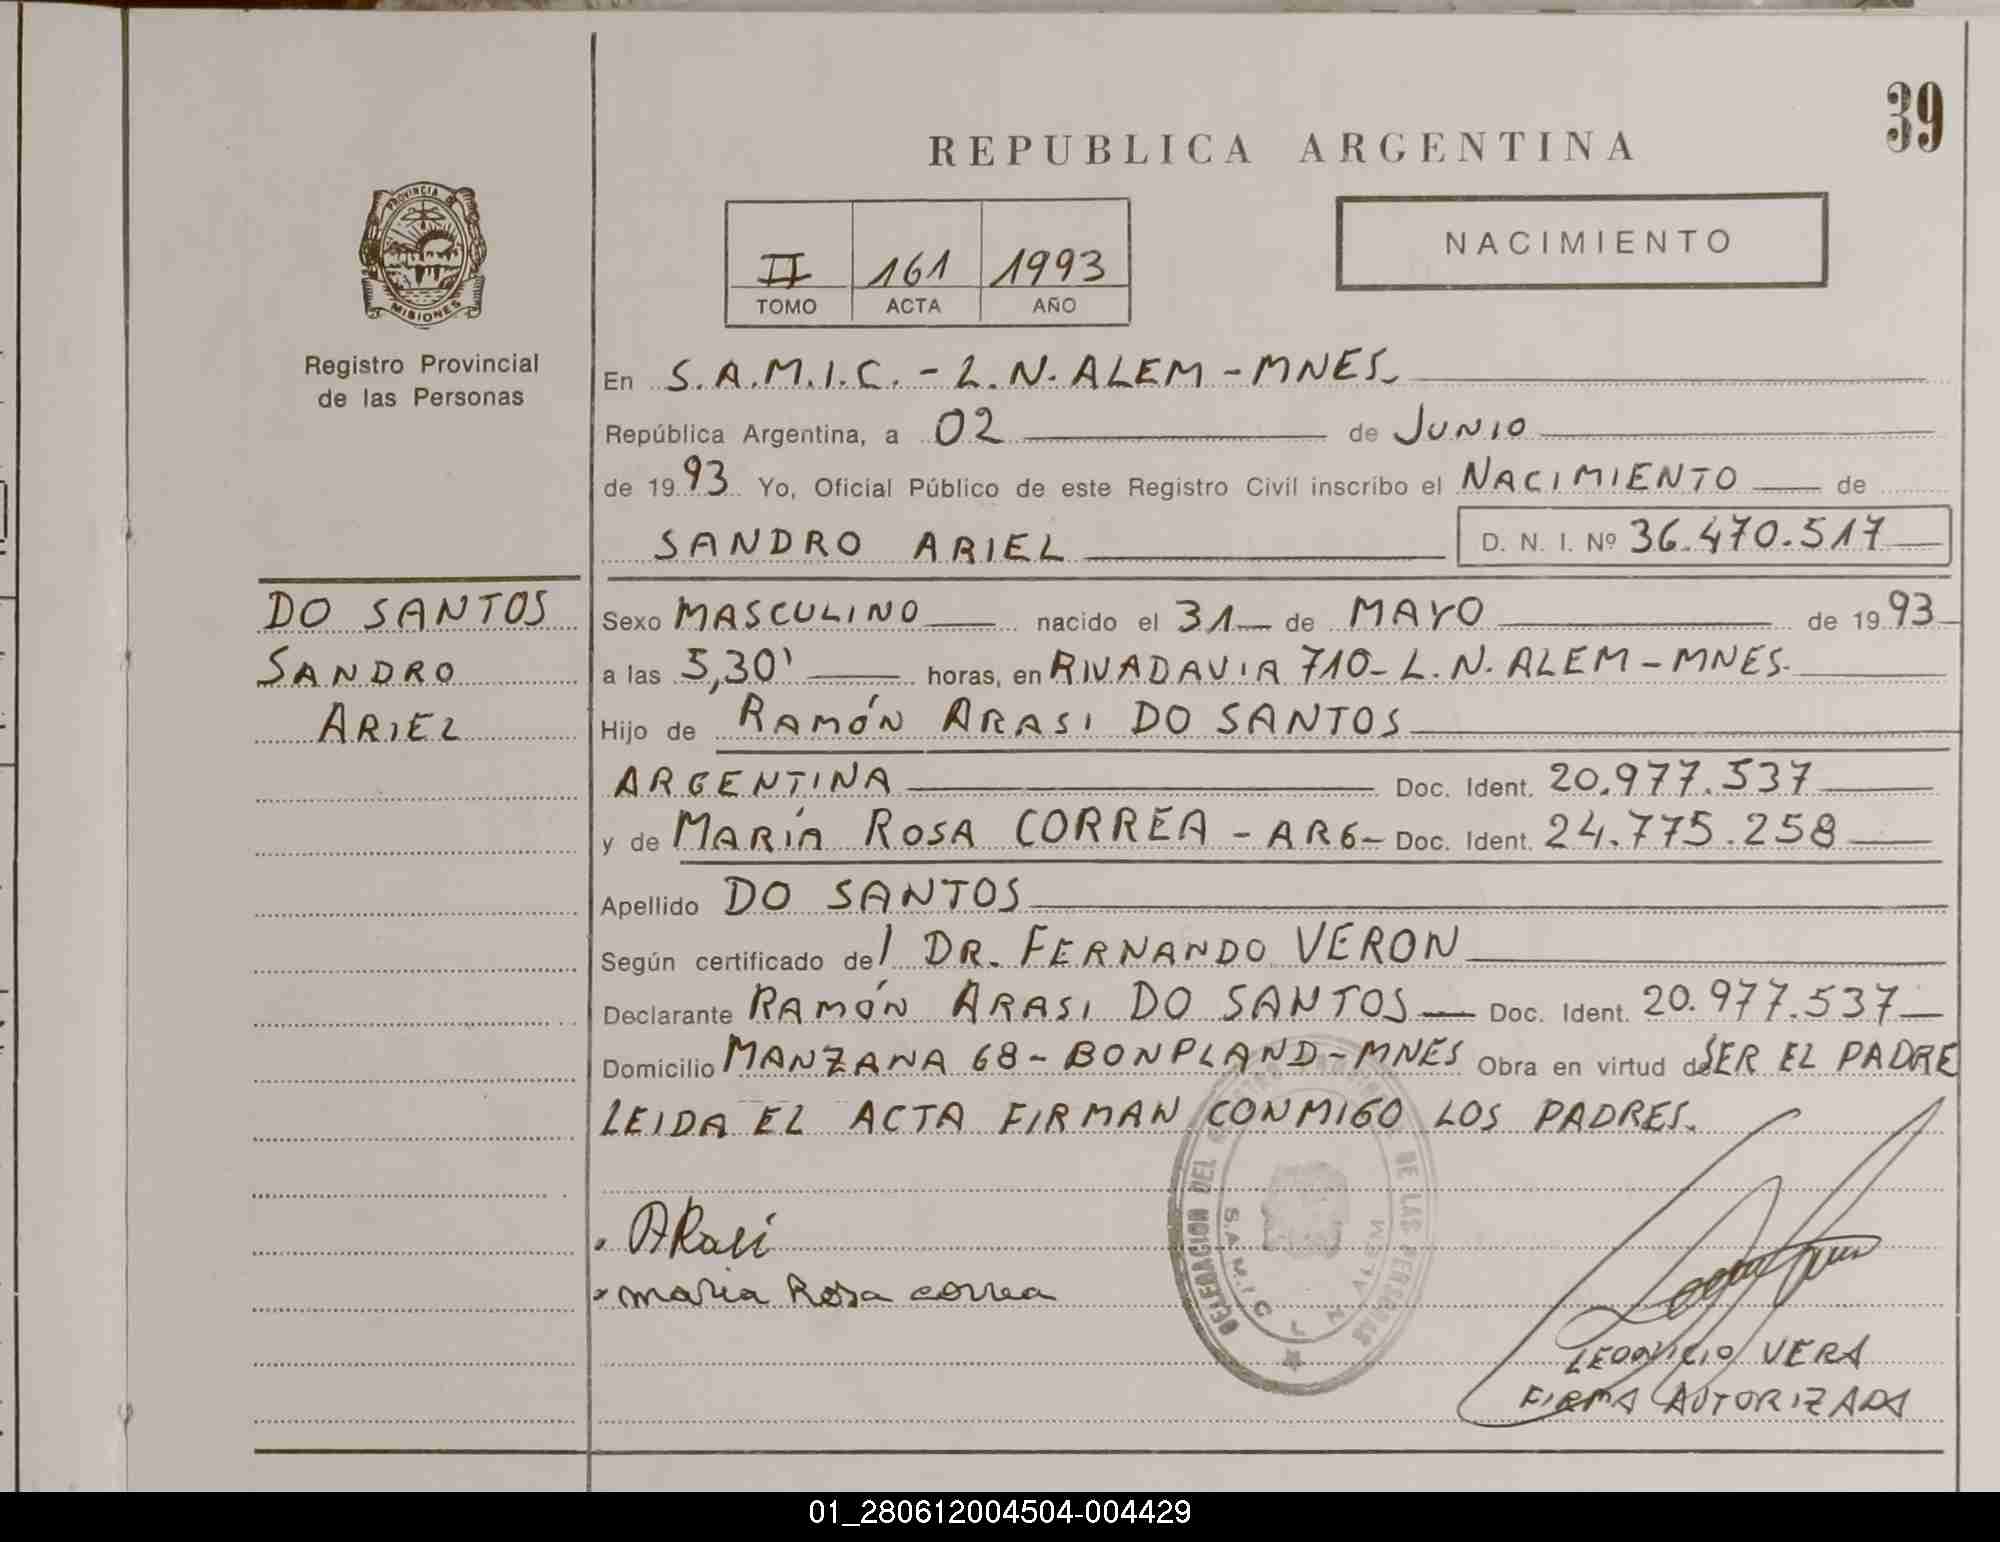 39
REPUBLICA ARGENTINA
PROVINCIA DE
MISIONES
II 161 1993
TOMO ACTA AÑO
NACIMIENTO
Registro Provincial
de las Personas
En S.A.M.I.C. - L.N. ALEM - MNES.
República Argentina, a 02 de JUNIO
de 1993 Yo, Oficial Público de este Registro Civil inscribo el NACIMIENTO de
SANDRO ARIEL D. N. I. Nº 36.470.517
DO SANTOS
SANDRO
ARIEL
Sexo MASCULINO nacido el 31 de MAYO de 1993
a las 5,30' horas, en RIVADAVIA 710 - L.N. ALEM - MNES.
Hijo de RAMÓN ARASI DO SANTOS
ARGENTINA Doc. Ident. 20.977.537
y de MARÍA ROSA CORREA - ARG - Doc. Ident. 24.775.258
Apellido DO SANTOS
Según certificado del DR. FERNANDO VERON
Declarante RAMÓN ARASI DO SANTOS Doc. Ident. 20.977.537
Domicilio MANZANA 68 - BONPLAND - MNES Obra en virtud de SER EL PADRE
LEIDA EL ACTA FIRMAN CONMIGO LOS PADRES.
ARasi
maria Rosa correa
DELEGACION DEL REGISTRO PROVINCIAL DE LAS PERSONAS
S.A.M.I.C. L N ALEM
LEONICIO VERA
FIRMA AUTORIZADA
01_280612004504-004429